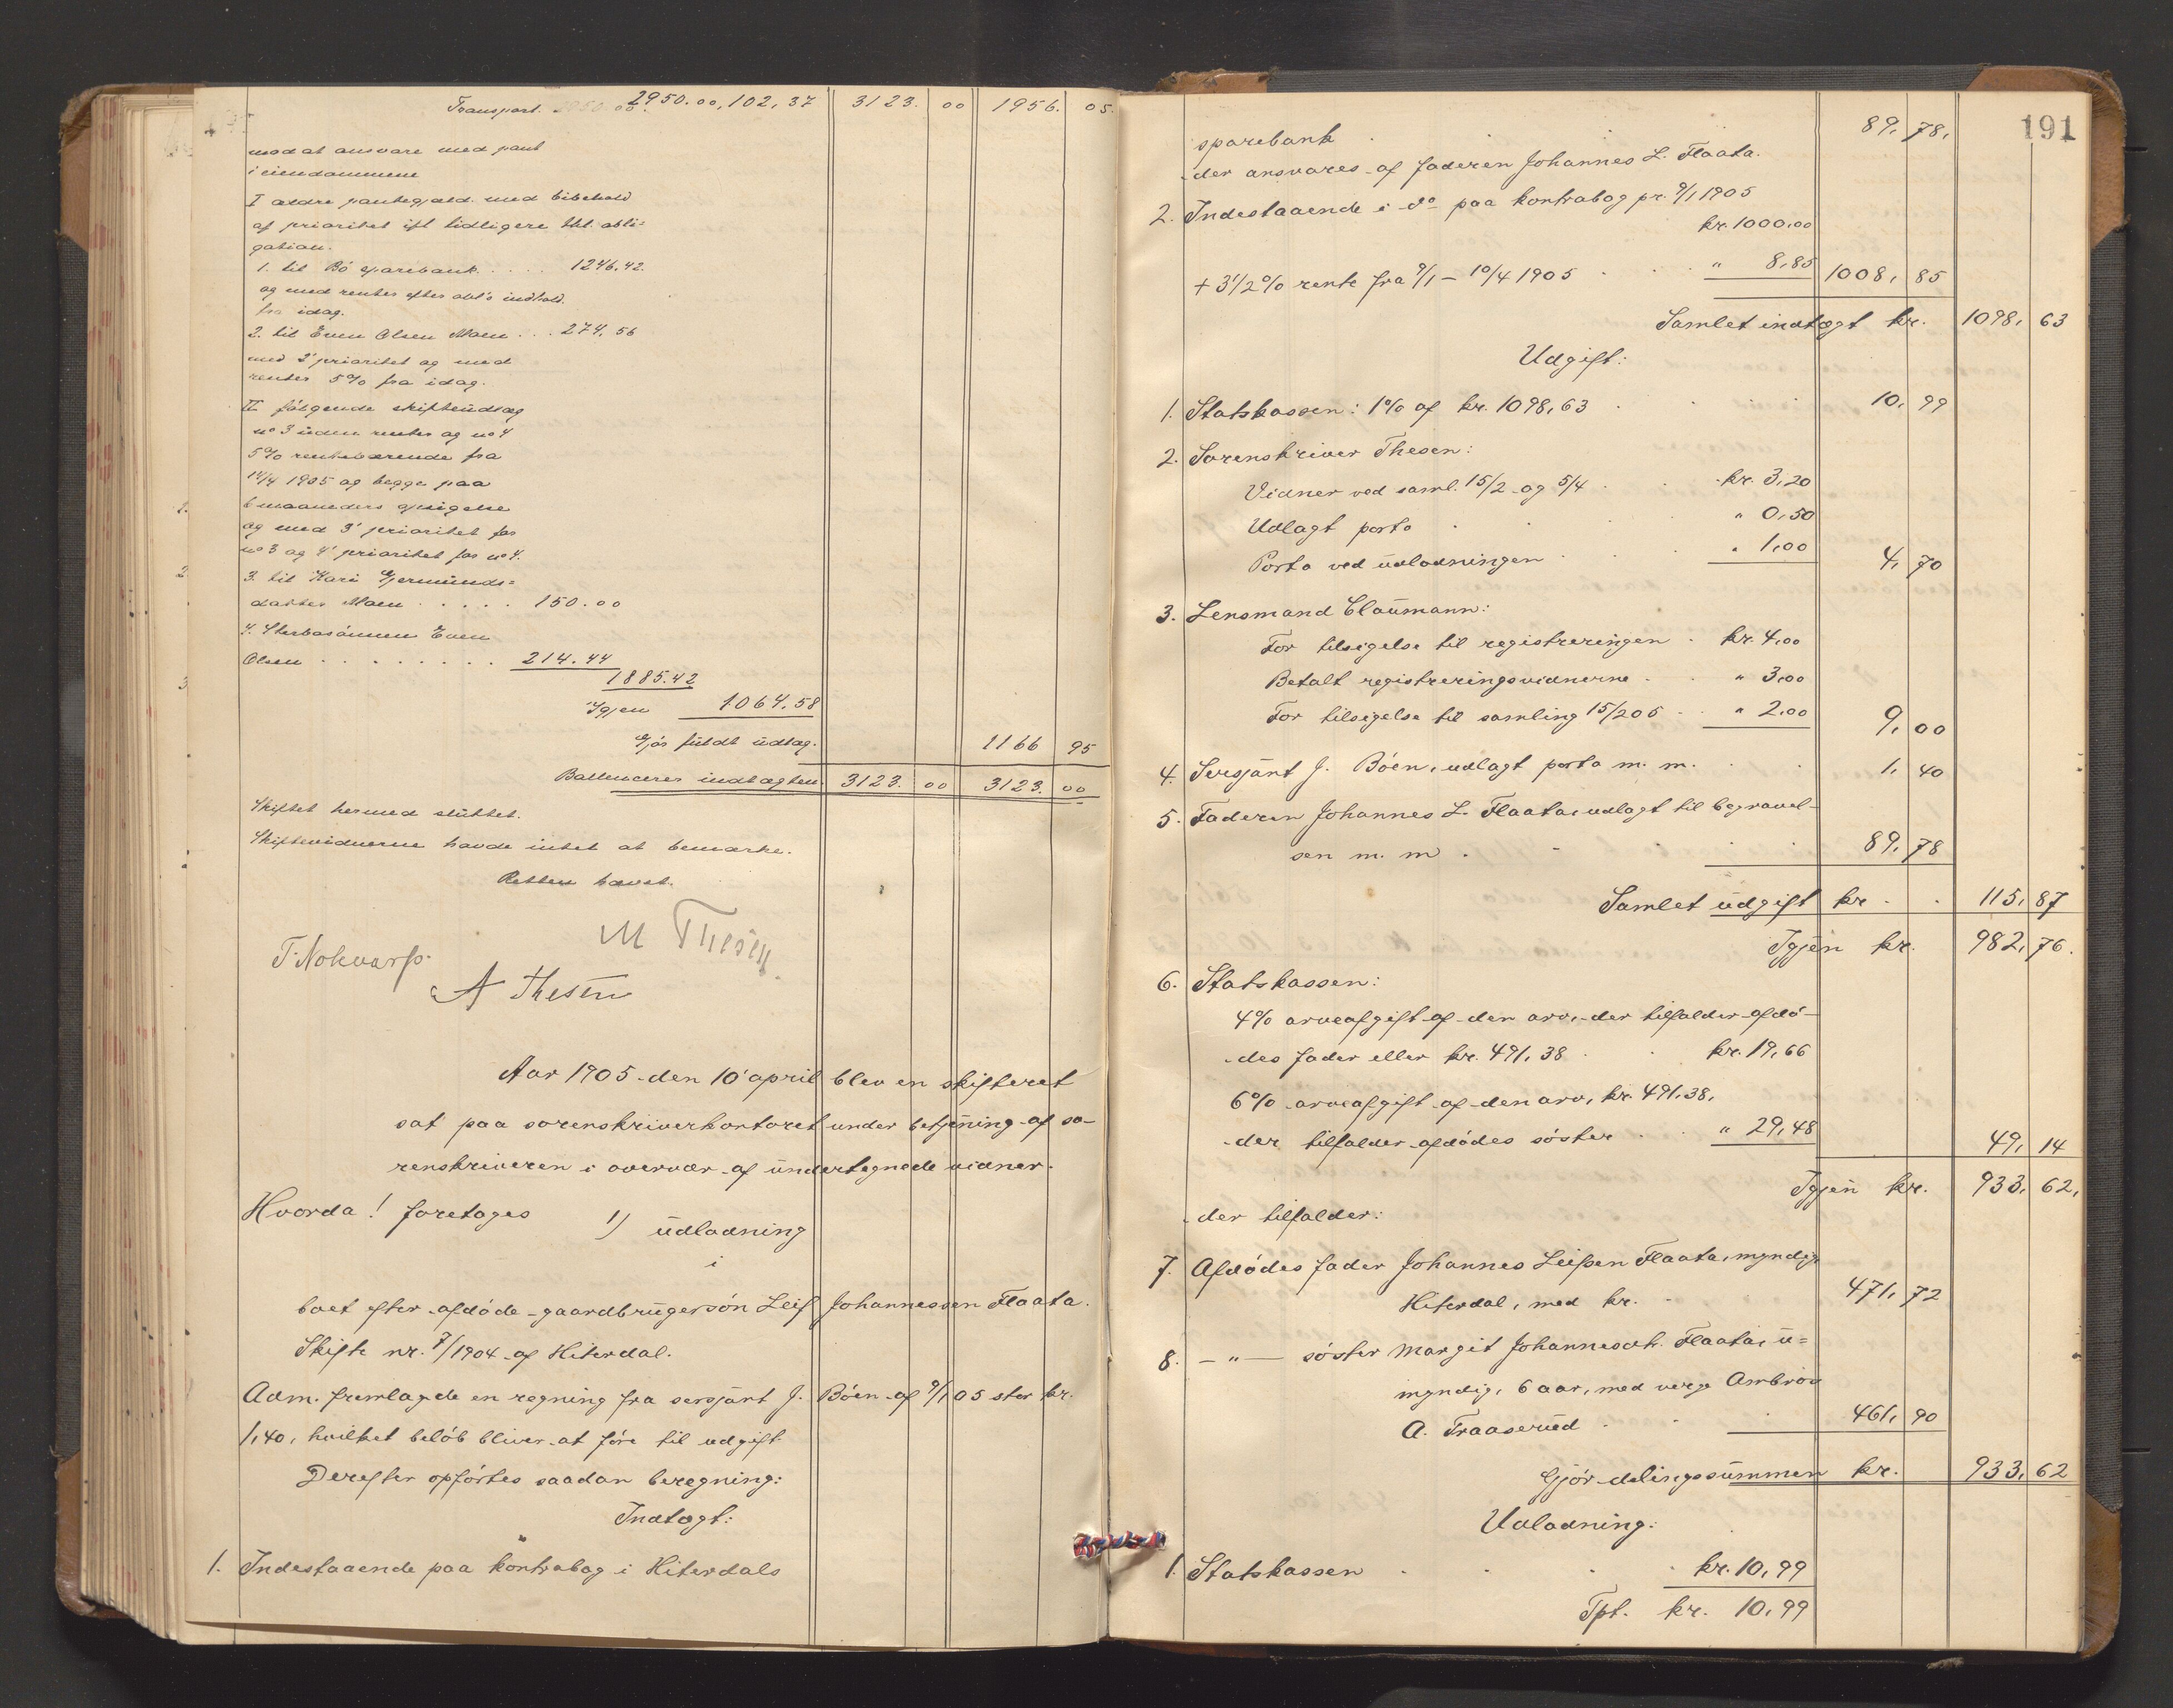 Transport. 2950.00, 102,37 3123. 00 1956. 05.
mod at ansvare med pant
i eiendommene
I ældre pantegjæld med bibehold
af prioritet ifl tidligere thl. obli=
gation.
1. til Bö sparebank . . . . 1246.42.
og med renter efter obl's indhold.
fra idag.
2. til Even Olsen Moen . . . 274.56
med 2' prioritet og med
renter 5% fra idag.
II følgende skifteudlæg
no 3 uden renter og no 4
5% rentebærende fra
14/4 1905 og begge paa
6 maaneders opsigelse
og med 3' prioritet for
no 3 og 4' prioritet for no 4.
3. til Kari Gjermunds=
datter Moen . . . . . 150.00
4. Sterbosønnen Even
Olsen . . . . . . . . 214.44
1885.42
Igjen 1064.58
Gjør fuldt udlæg. 1166 95
Ballancerer indtægten. 3123. 00 3123. 00
Skiftet hermed sluttet.
Skiftevidnerne havde intet at bemærke.
Retten hævet.
M Thesen
T. Nokvarp.
A Thesen
Aar 1905 den 10' april blev en skifteret
sat paa sorenskriverkontoret under betjening af so-
renskriveren i overvær af undertegnede vidner.
Hvorda! foretoges 1) udlodning
i
boet efter afdöde gaardbrugersön Leif Johannessen Flaata.
Skifte nr. 7/1904 af Hiterdal.
Adm. fremlagde en regning fra sersjant J. Böen af 9/1 05 stor kr.
1,40, hvilket belöb bliver at före til udgift.
Derefter opførtes saadan beregning:
Indtægt:
1. Indestaaende paa kontrabog i Hiterdals
191
sparebank . . . 89, 78,
der ansvares af faderen Johannes L. Flaata.
2. Indestaaende i do paa kontrabog pr. 9/1 1905
kr. 1000,00
+ 3 1/2 % rente fra 9/1 - 10/4 1905 . . . " 8,85 1008, 85
Samlet indtægt kr. 1098, 63
Udgift:
1. Statskassen: 1% af kr. 1098,63 . . . 10, 99
2. Sorenskriver Thesen:
Vidner ved saml. 15/2 og 5/4 . . kr. 3,20
Udlagt porto . . . " 0,50
Porto ved udlodningen . . . " 1,00 4, 70
3. Lensmand Claumann:
For tilsigelse til registreringen . kr. 4,00
Betalt registreringsvidnerne . . " 3,00
For tilsigelse til samling 15/2 05 . . " 2,00 9, 00
4. Sersjant J. Böen, udlagt porto m. m. . . 1, 40
5. Faderen Johannes L. Flaata, udlagt til begravel-
sen m. m . . . . 89, 78
Samlet udgift kr . . 115, 87
Igjen kr. 982, 76.
6. Statskassen:
4% arveafgift af den arv, der tilfalder afdö-
des fader eller kr. 491,38 . . kr. 19,66
6% arveafgift af den arv, kr. 491,38,
der tilfalder afdödes söster . . " 29,48 49, 14
Igjen kr. 933, 62,
der tilfalder:
7. Afdödes fader Johannes Leifsen Flaata, myndig,
Hiterdal, med kr. . 471, 72
8. - " - söster Margit Johannesdtr. Flaata, u=
myndig, 6 aar, med verge Ambros
A. Fraaserud . . . 461, 90
Gjör delingssummen kr. 933, 62
Udlodning:
1. Statskassen . . . kr. 10,99
Tpt. kr. 10,99